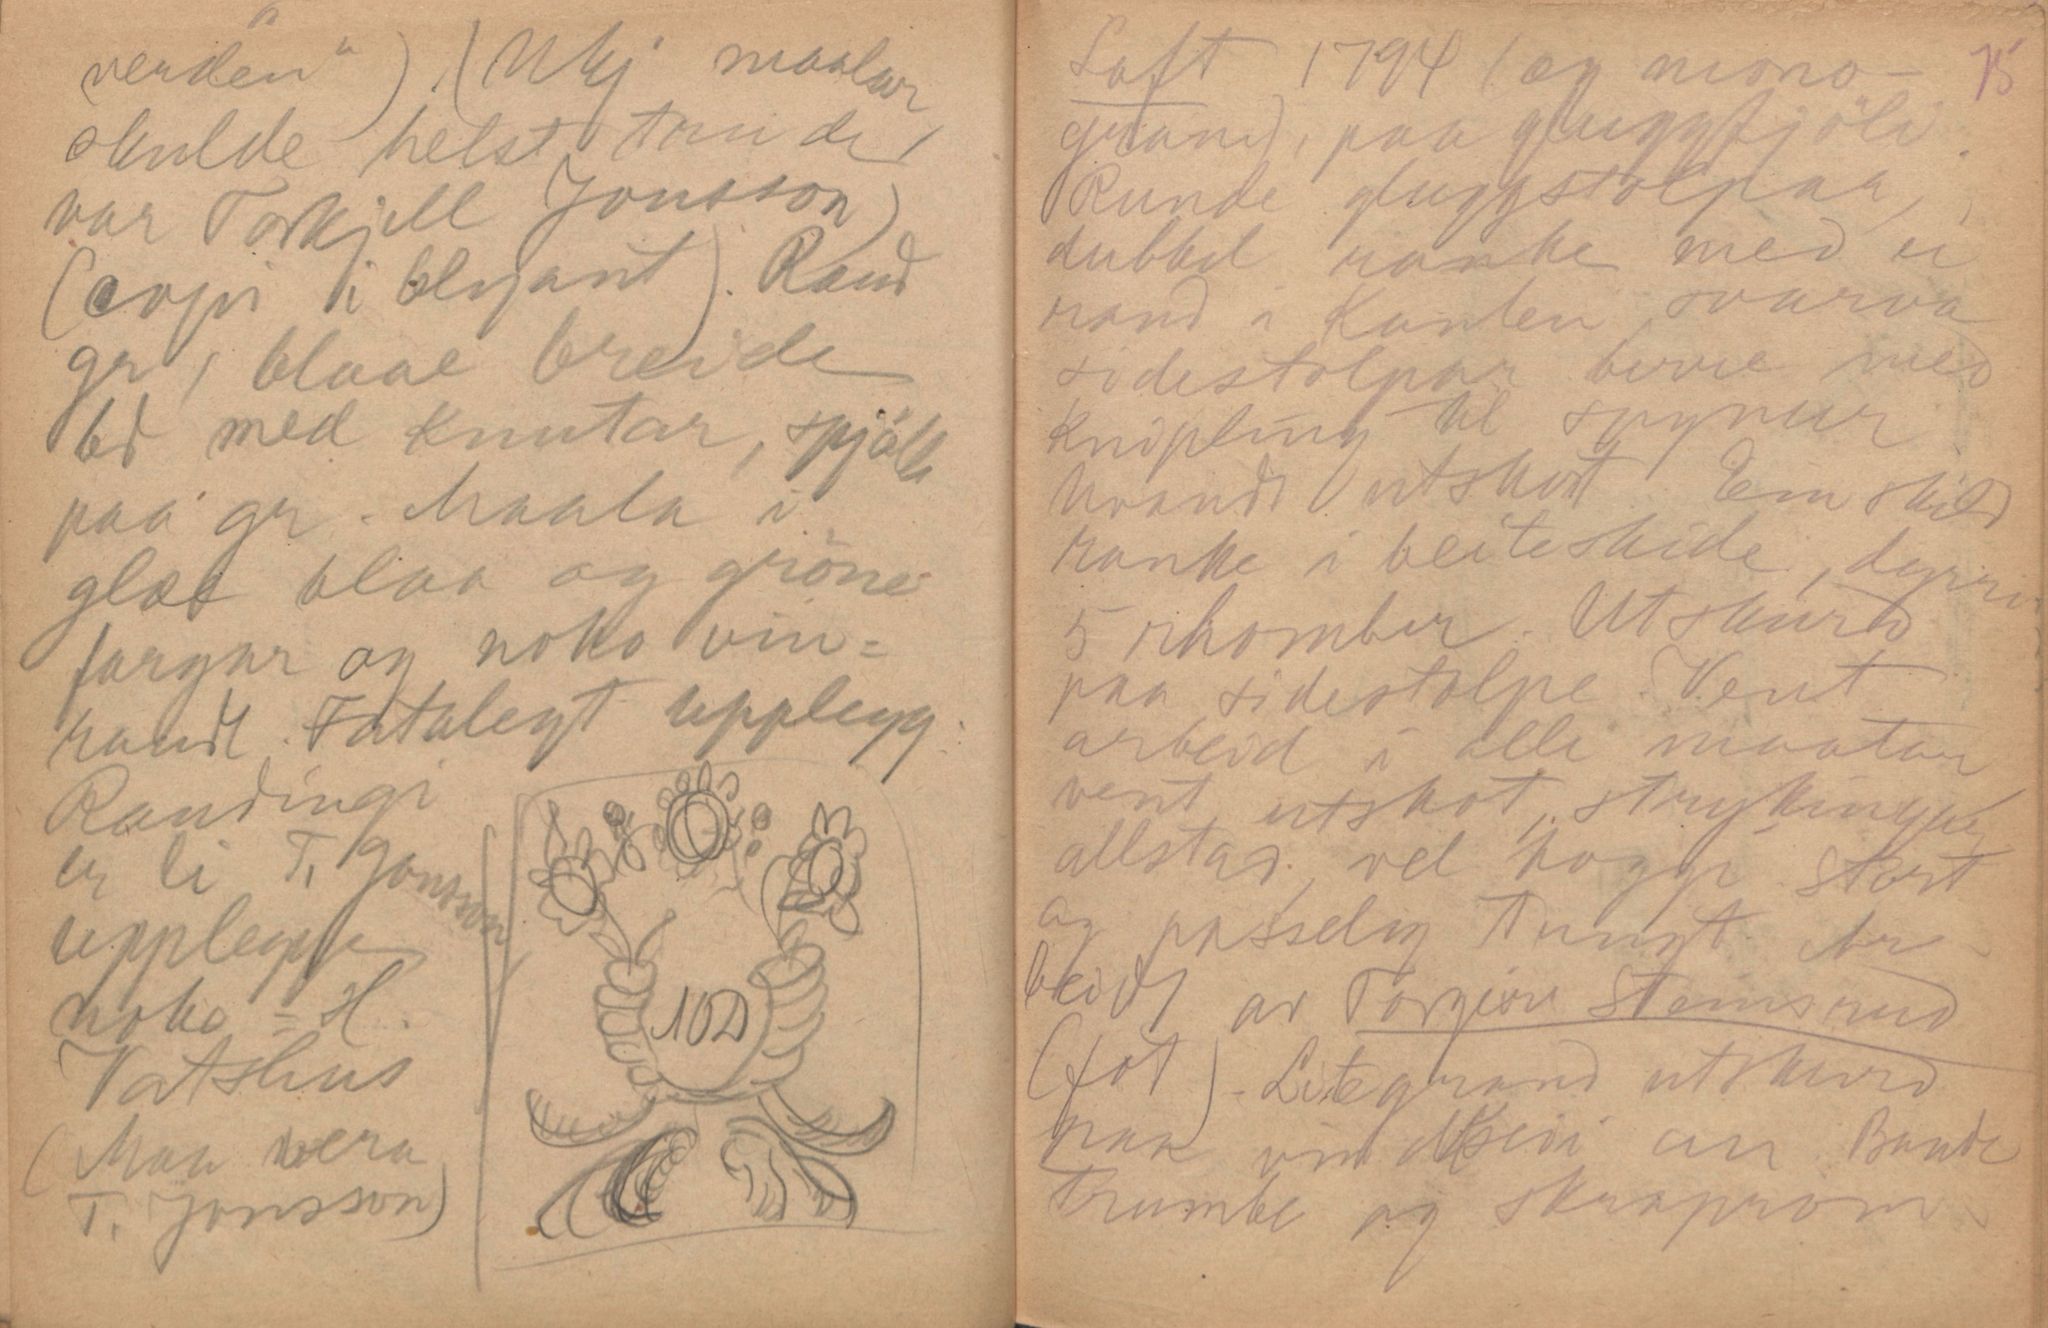 verden") (Ukj maalar,
skulde helst tru de
var Torkjell Jonsson)
(copi i elegant). Raud
gr, blaae breide
bd med knutar, spjäll
paa gr. Maala i
glas blaa og gröne
fargar og noko vin=
raudt. Fatalegt upplegg.
Raudingi
er li T. Jonsson,
upplegge
noko = H.
Vatshus
(Maa vera
T. Jonsson)
NOD
Loft 1794 (og mono-
gram), paa gluggfjöli.
Runde gluggstolpaa,
dubbel ranke med ei
rand i kanten, svarva
sidestolpar berre med
knipling til
utskot. Einskild
ranke i beiteskide, dyrri
5 rhomber. Utskurd
paa sidestolpe. Vent
arbeid i alle maatar
vent utskot, strykingar
allstad, vel hoggi. Stort
og passeleg tungt. Ar-
beidt av Torgjus Steinsrud
(fot). Litegrand utskurd
paa an Baade
trumbe og skraprom
75